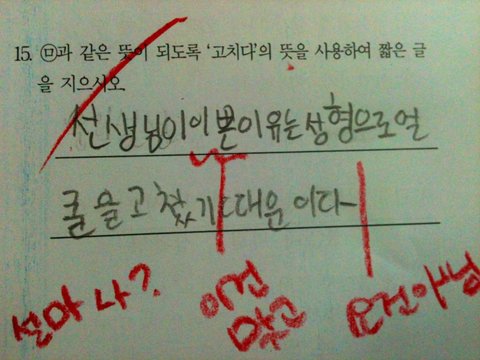 15. ㉤과 같은 뜻이 되도록 '고치다'의 뜻을 사용하여 짧은 글
을 지으시오
선생님이 이쁜 이유는 성형으로 얼
굴을 고쳤기 때문이다
설마 나?
이건
맞고
요건 아님